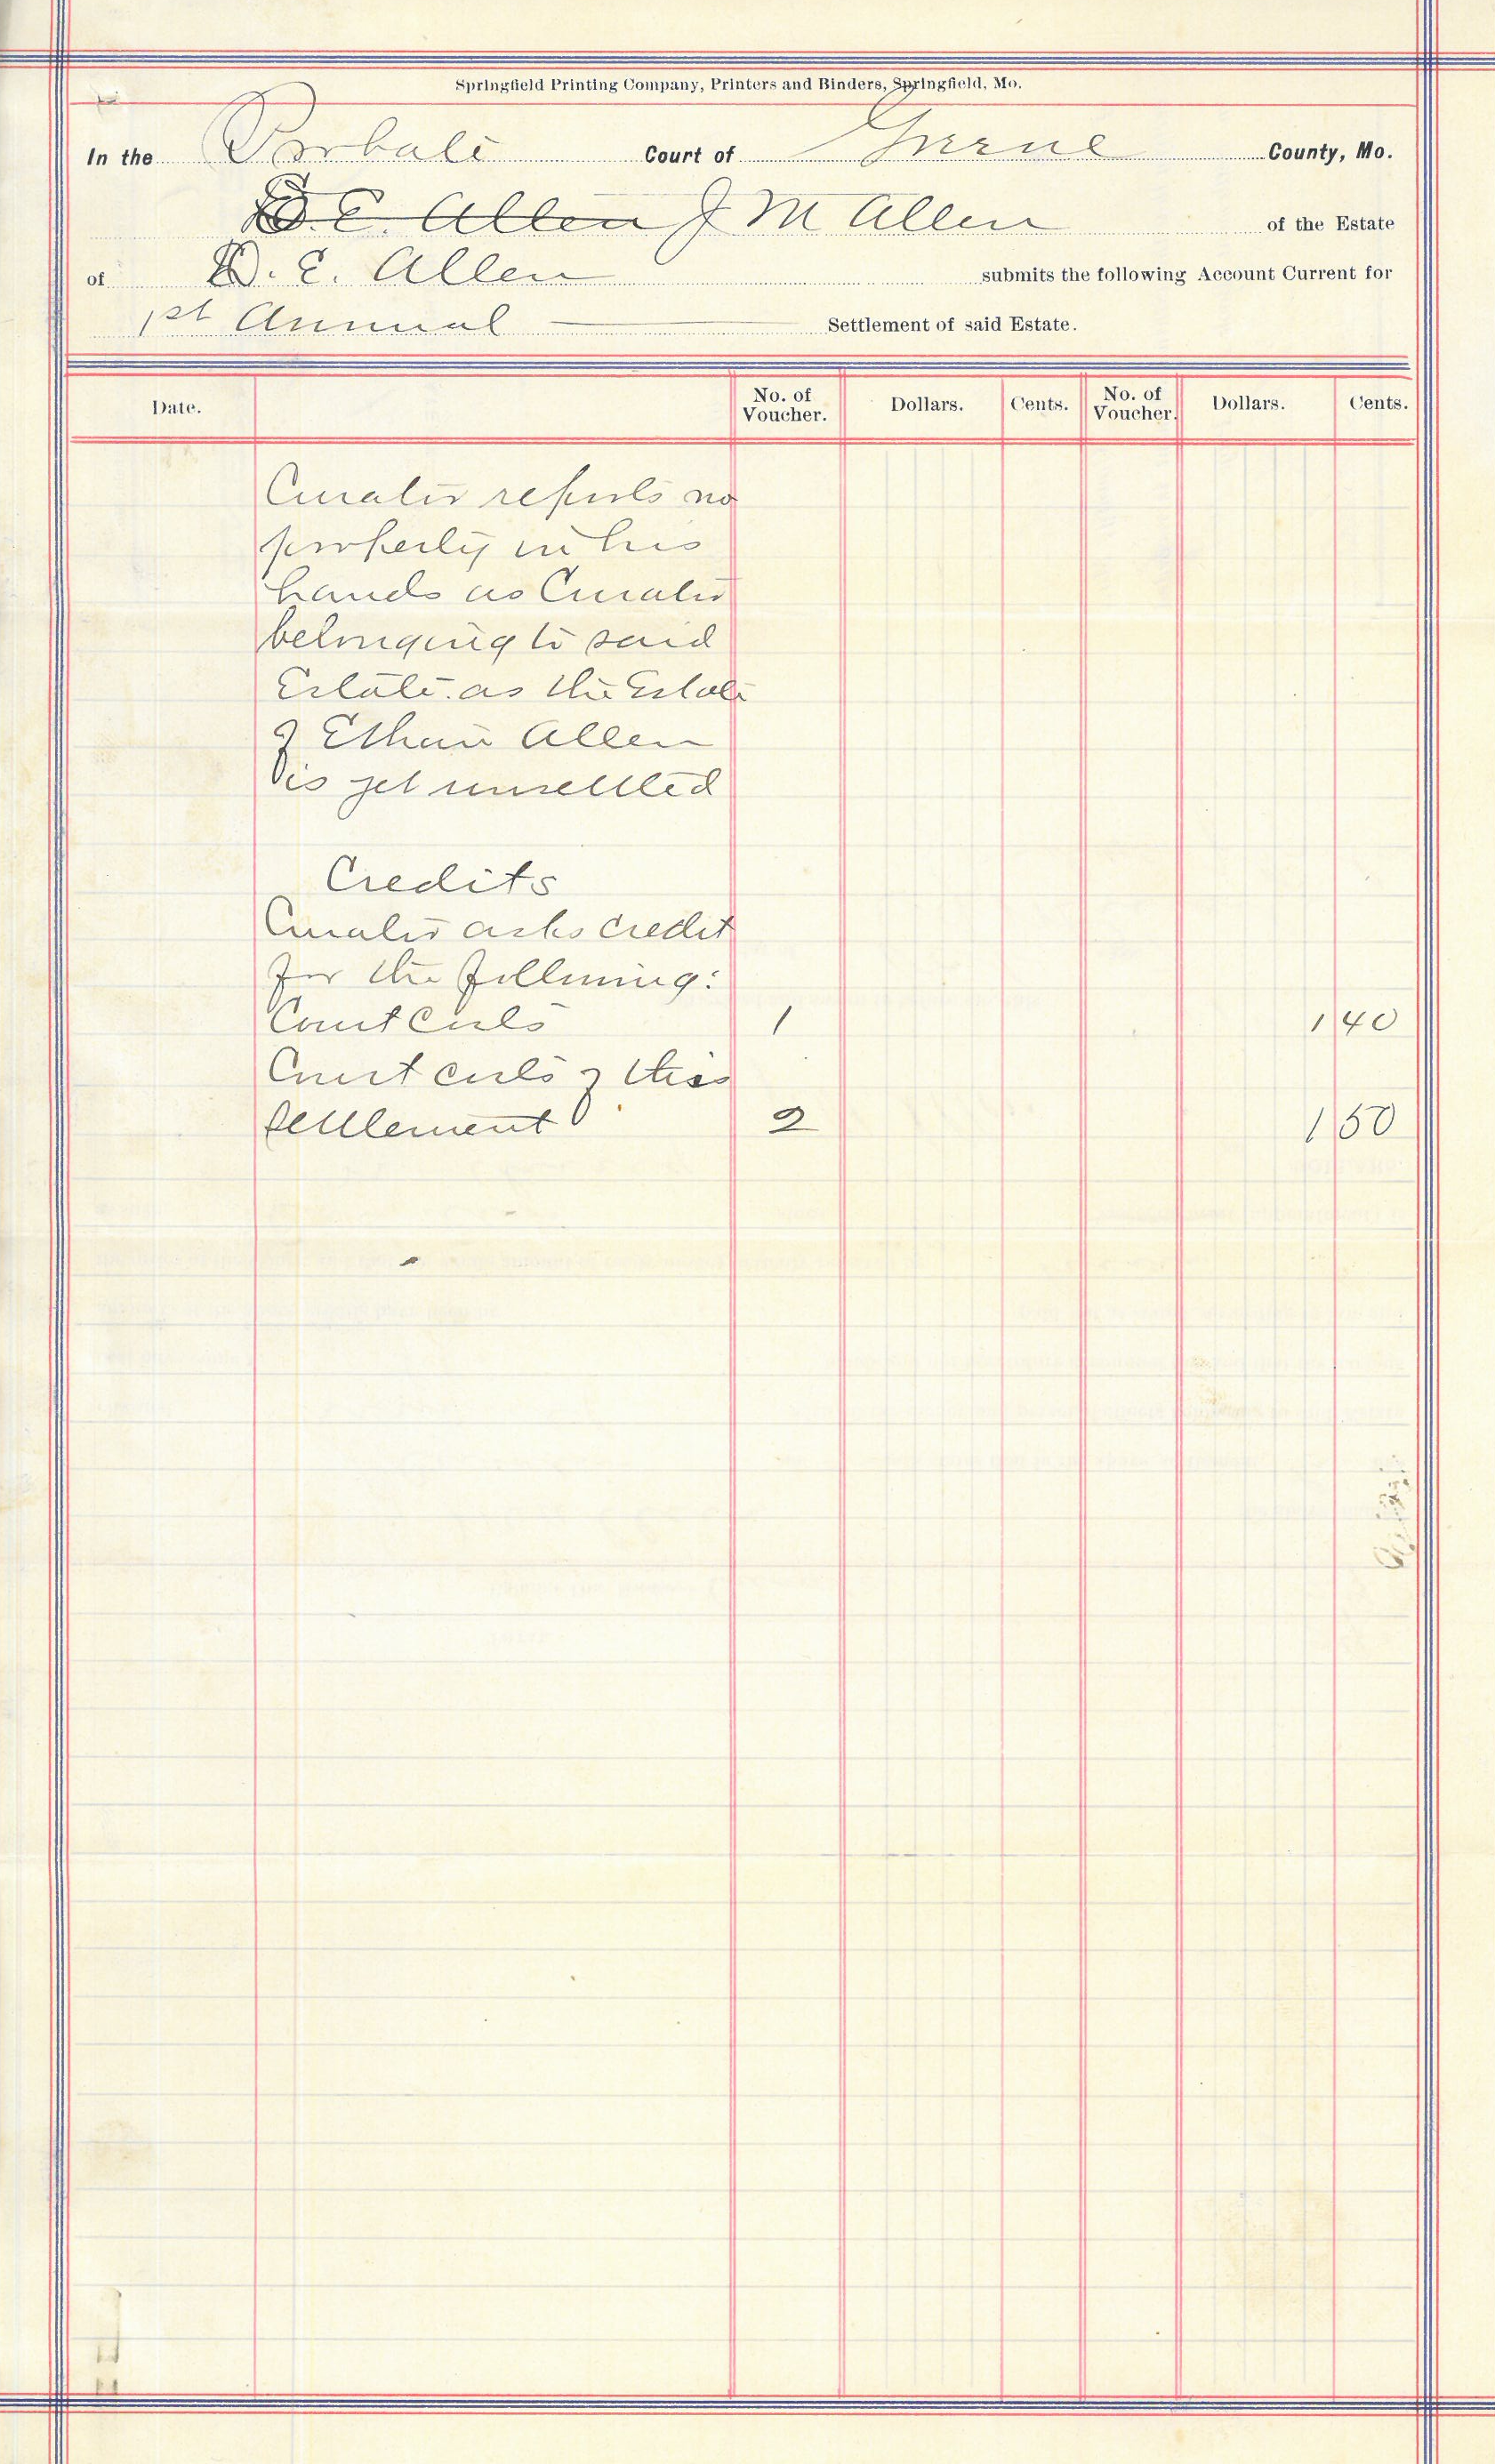 Springfield Printing Company, Printers and Binders, Springfield, Mo.
In the Probate Court of Greene County, Mo.
D. E. Allen J M Allen of the Estate
of D. E. Allen submits the following Account Current for
1st Annual Settlement of said Estate.
Date. No. of Voucher. Dollars. Cents. No. of Voucher. Dollars. Cents.
Curator reports no
property in his
hands as Curator
belonging to said
Estate. as the Estate
of Ethan Allen
is yet unsettled
Credits
Curator asks credit
for the following:
Court Costs 1 1 40
Court costs of this
settlement 2 1 50